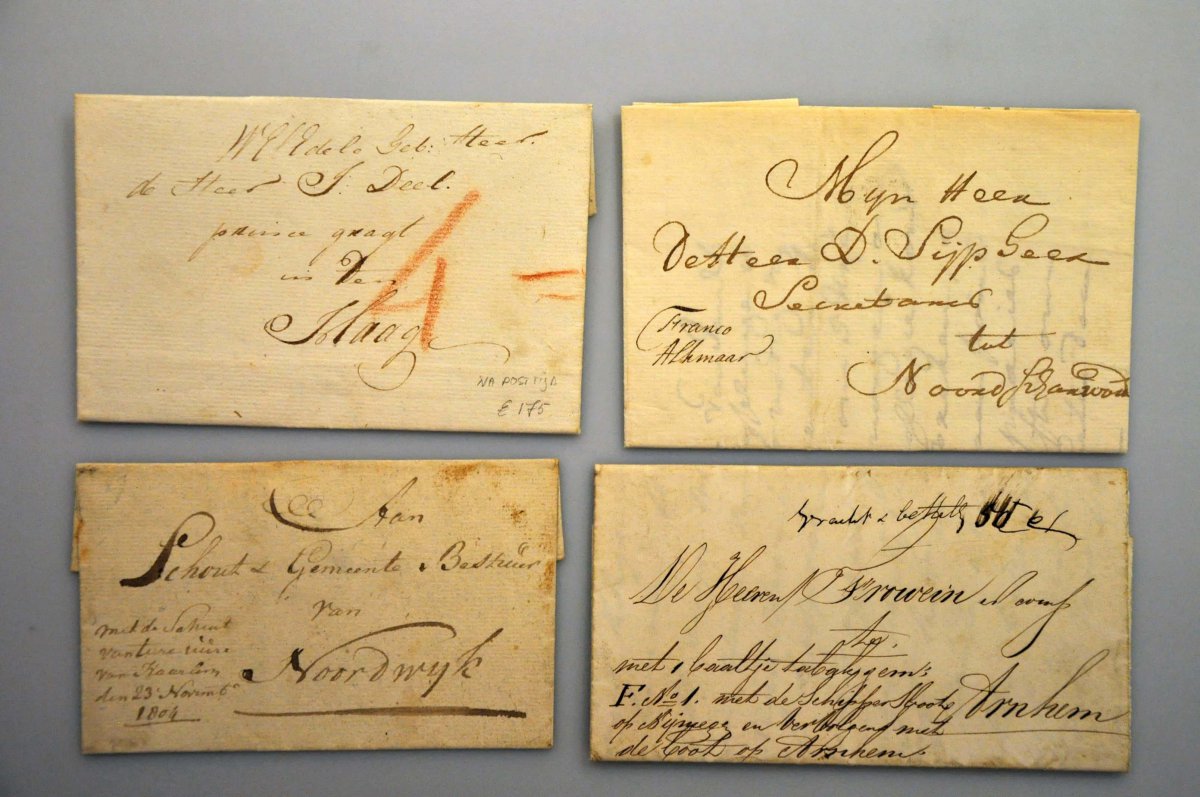 WEEdele Geb: Heer.
de Heer J: Deel.
prince gragt
in Den
Haag
4
NA POSTTIJD
€ 175
Myn Heer
De Heer D. Sijp
Secretaris
Franco
Alkmaar
tot
Noord
Aan
Schout & Gemeente Bestuur
van
Noordwijk
met de Schuit
van
van Haarlem
den 23 Novemb
1804
vracht
De Heeren Frowein
met 1 baaltje
F. No 1. met de Schipper
op Nijmegen en vervolgens met
de boot op Arnhem.
Arnhem